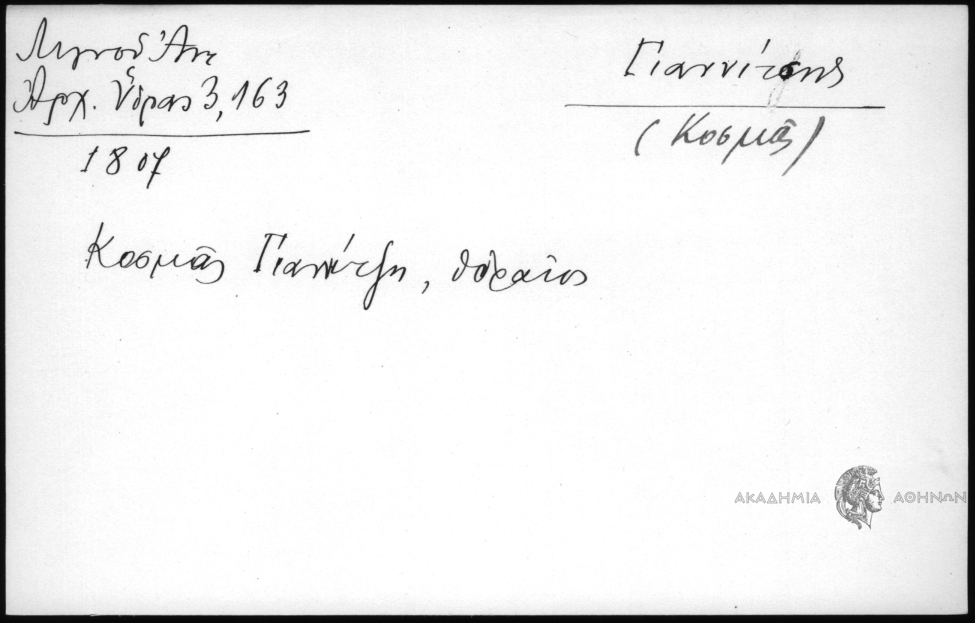 Λιγνοῦ Ἀντ
Ἀρχ. Ὕδρας 3, 163
1807
Γιαννίτσης
(Κοσμᾶς)
Κοσμᾶς Γιαννίτζη,
ΑΚΑΔΗΜΙΑ ΑΘΗΝΩΝ